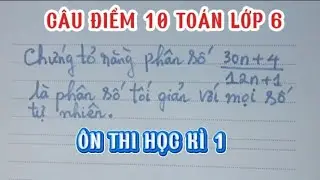 CÂU ĐIỂM 10 TOÁN LỚP 6
Chứng tỏ rằng phân số 30n+4/12n+1
là phân số tối giản với mọi số
tự nhiên.
ÔN THI HỌC KÌ 1